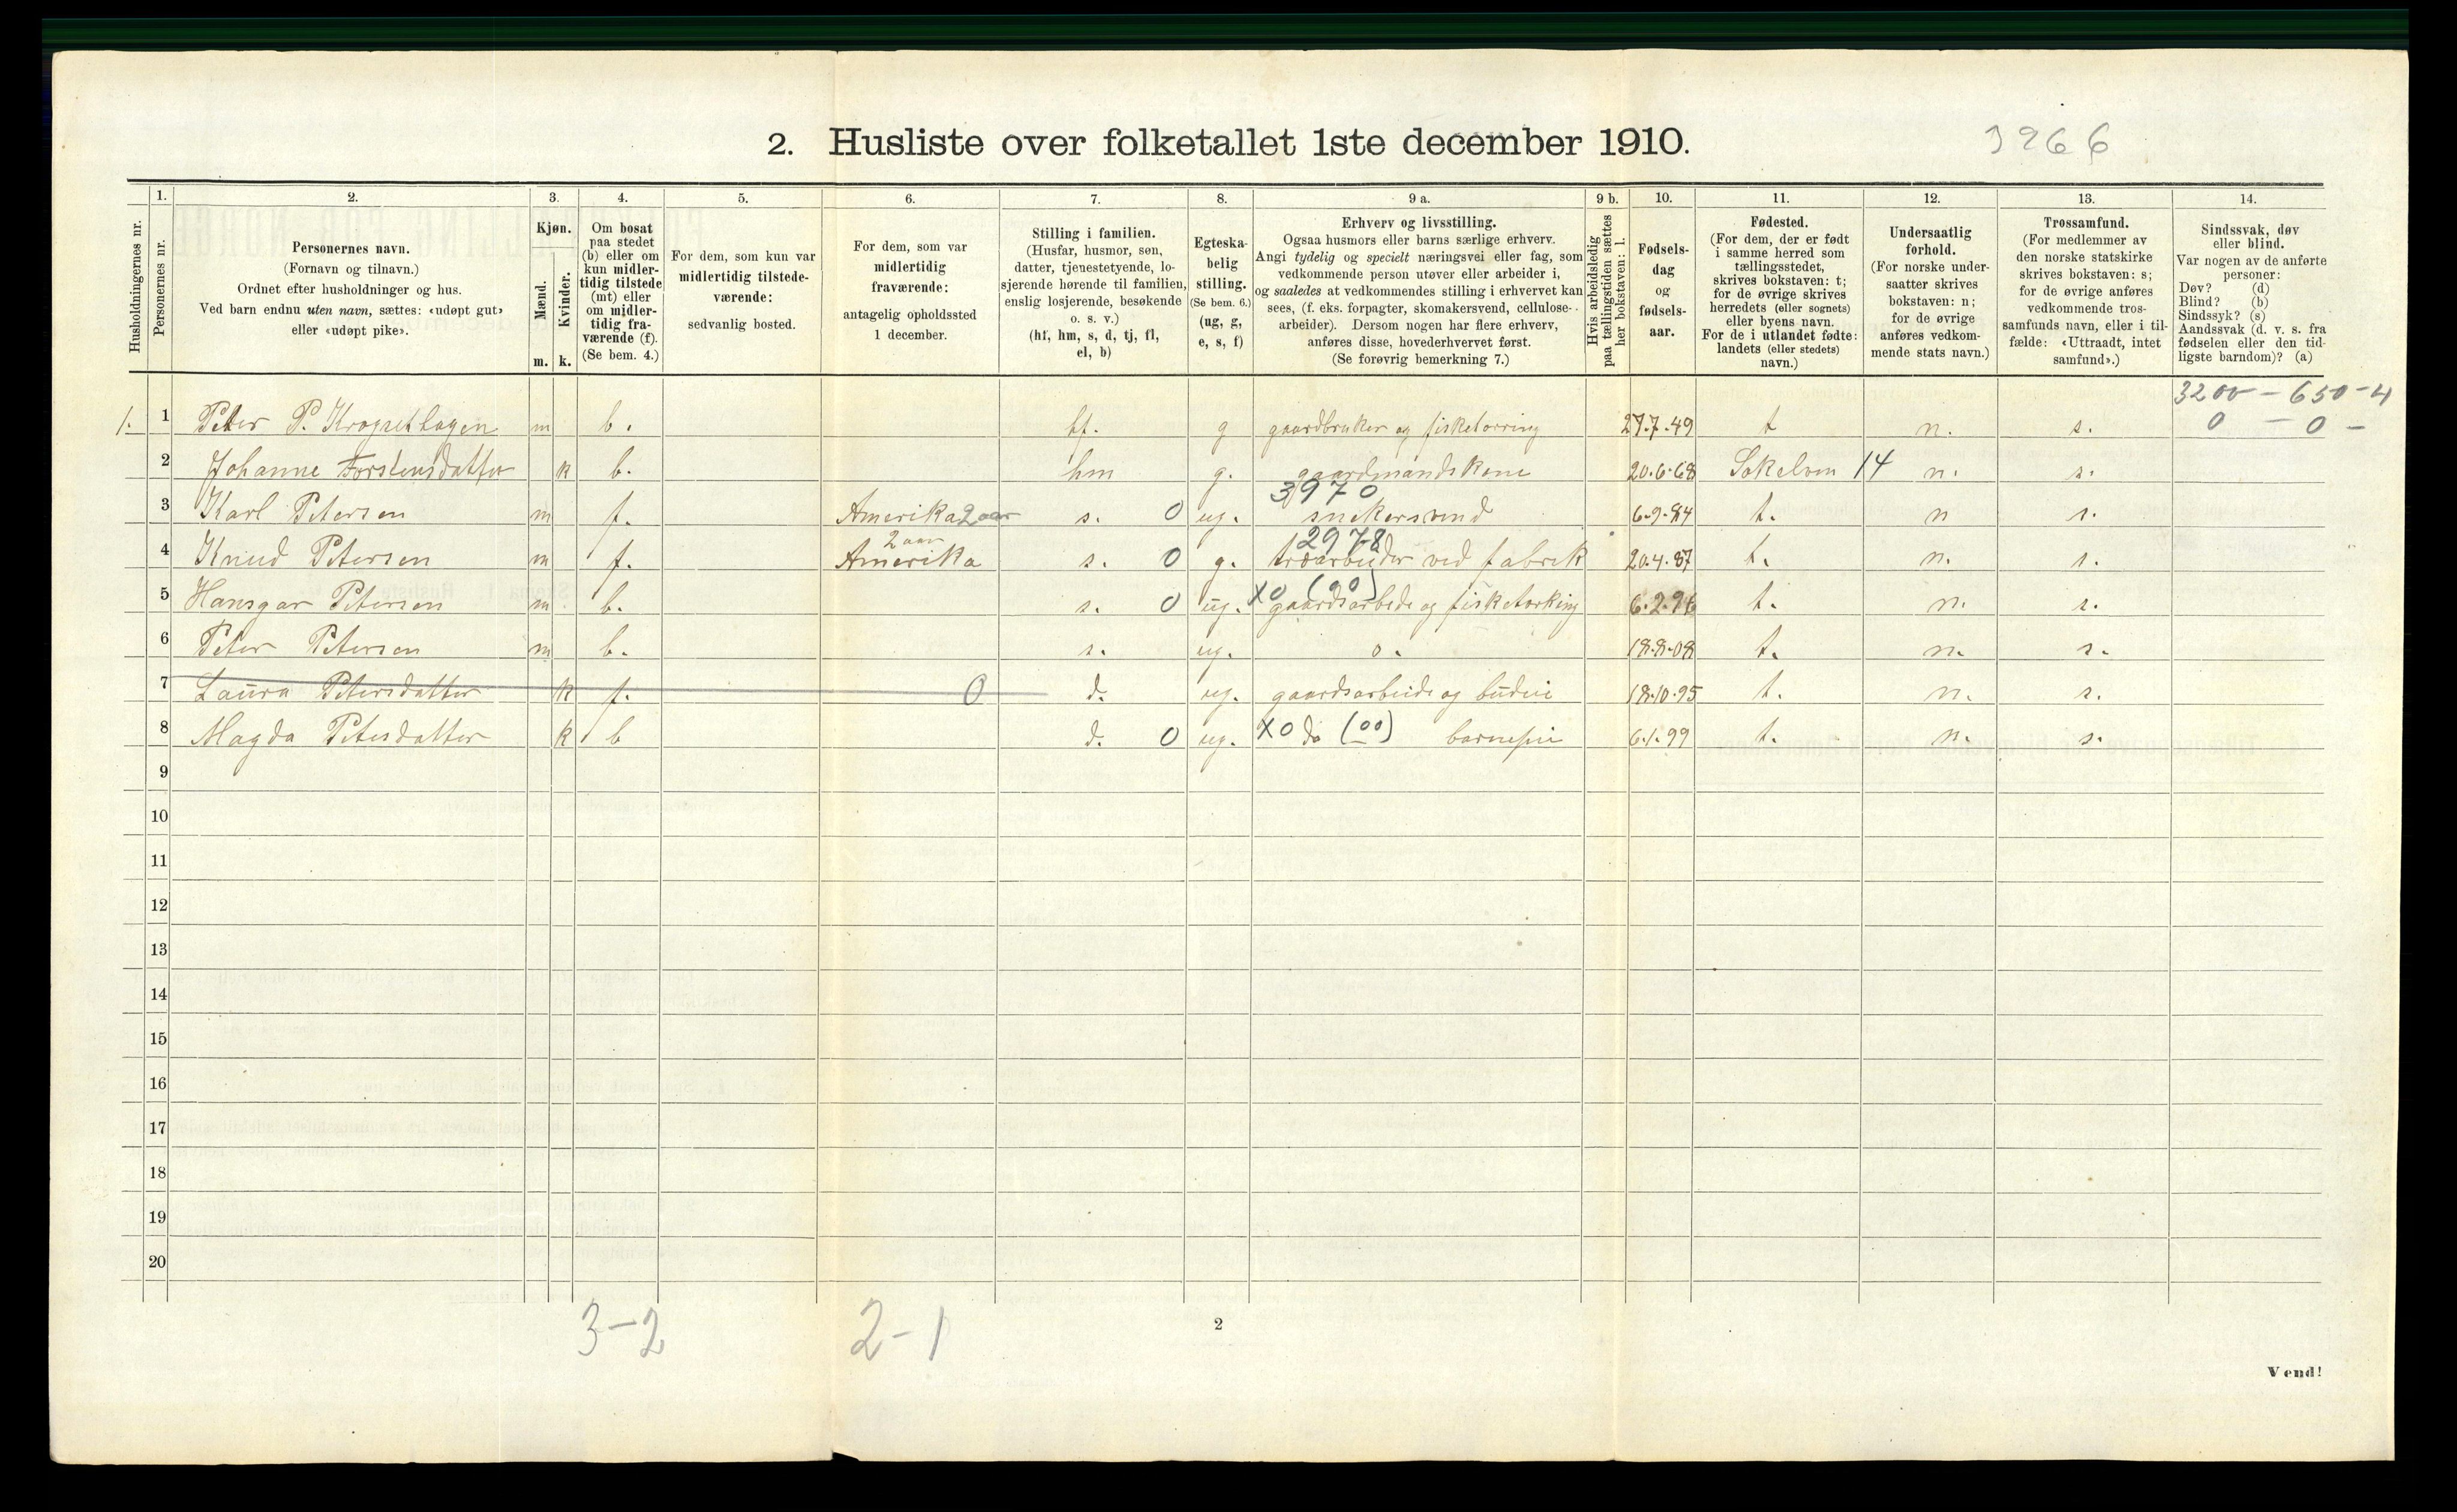 2. Husliste over folketallet 1ste december 1910.
3266
1. 2. 3. 4. 5. 6. 7. 8. 9 a. 9 b. 10. 11. 12. 13. 14.
Husholdningernes nr.
Personernes nr.
Personernes navn.
(Fornavn og tilnavn.)
Ordnet efter husholdninger og hus.
Ved barn endnu uten navn, sættes: «udøpt gut»
eller «udøpt pike».
Kjøn.
Mænd.
m.
Kvinder.
k.
Om bosat
paa stedet
(b) eller om
kun midler-
tidig tilstede
(mt) eller
om midler-
tidig fra-
værende (f).
(Se bem. 4.)
For dem, som kun var
midlertidig tilstede-
værende:
sedvanlig bosted.
For dem, som var
midlertidig
fraværende:
antagelig opholdssted
1 december.
Stilling i familien.
(Husfar, husmor, søn,
datter, tjenestetyende, lo-
sjerende hørende til familien,
enslig losjerende, besøkende
o. s. v.)
(hf, hm, s, d, tj, fl,
el, b)
Egteska-
belig
stilling.
(Se bem. 6.)
(ug, g,
e, s, f)
Erhverv og livsstilling.
Ogsaa husmors eller barns særlige erhverv.
Angi tydelig og specielt næringsvei eller fag, som
vedkommende person utøver eller arbeider i,
og saaledes at vedkommendes stilling i erhvervet kan
sees, (f. eks. forpagter, skomakersvend, cellulose-
arbeider). Dersom nogen har flere erhverv,
anføres disse, hovederhvervet først.
(Se forøvrig bemerkning 7.)
Hvis arbeidsledig
paa tællingstiden sættes
her bokstaven: l.
Fødsels-
dag
og
fødsels-
aar.
Fødested.
(For dem, der er født
i samme herred som
tællingsstedet,
skrives bokstaven: t;
for de øvrige skrives
herredets (eller sognets)
eller byens navn.
For de i utlandet fødte:
landets (eller stedets)
navn.)
Undersaatlig
forhold.
(For norske under-
saatter skrives
bokstaven: n;
for de øvrige
anføres vedkom-
mende stats navn.)
Trossamfund.
(For medlemmer av
den norske statskirke
skrives bokstaven: s;
for de øvrige anføres
vedkommende tros-
samfunds navn, eller i til-
fælde: «Uttraadt, intet
samfund».)
Sindssvak, døv
eller blind.
Var nogen av de anførte
personer:
Døv? (d)
Blind? (b)
Sindssyk? (s)
Aandssvak (d. v. s. fra
fødselen eller den tid-
ligste barndom)? (a)
3200 - 650 - 4
1. 1 Peter P. m b. hf. g gaardbruker og 27.7.49 t n. s. 0 - 0 -
2 Johanne Torstensdatter k b. hm g. gaardmandskone 20.6.68 14 n. s.
3970
3 Karl Petersen m f. Amerika 2 aar s. 0 ug. snekersvend 6.9.84 t. n s.
2 aar
2978
4 Knud Petersen m f. Amerika s. 0 g. træarbeider ved fabrik 20.4.87 t. n. s.
5 Hansgar Petersen m b. s. 0 ug. X0 (00) gaardsarbeide og fisketørking 6.2.96 t. n. s.
6 Peter Petersen m b. s. ug. o. 18.8.08 t. n. s.
7 Laura Petersdatter k f. 0 d. ug. gaardsarbeide og budeie 18.10.95 t. n. s.
8 Magda Petersdatter k b d. 0 ug. X0 do (00) 6.1.99 t. n. s.
9
10
11
12
13
14
15
16
17
18
19
20
3-2 2-1
2
Vend!